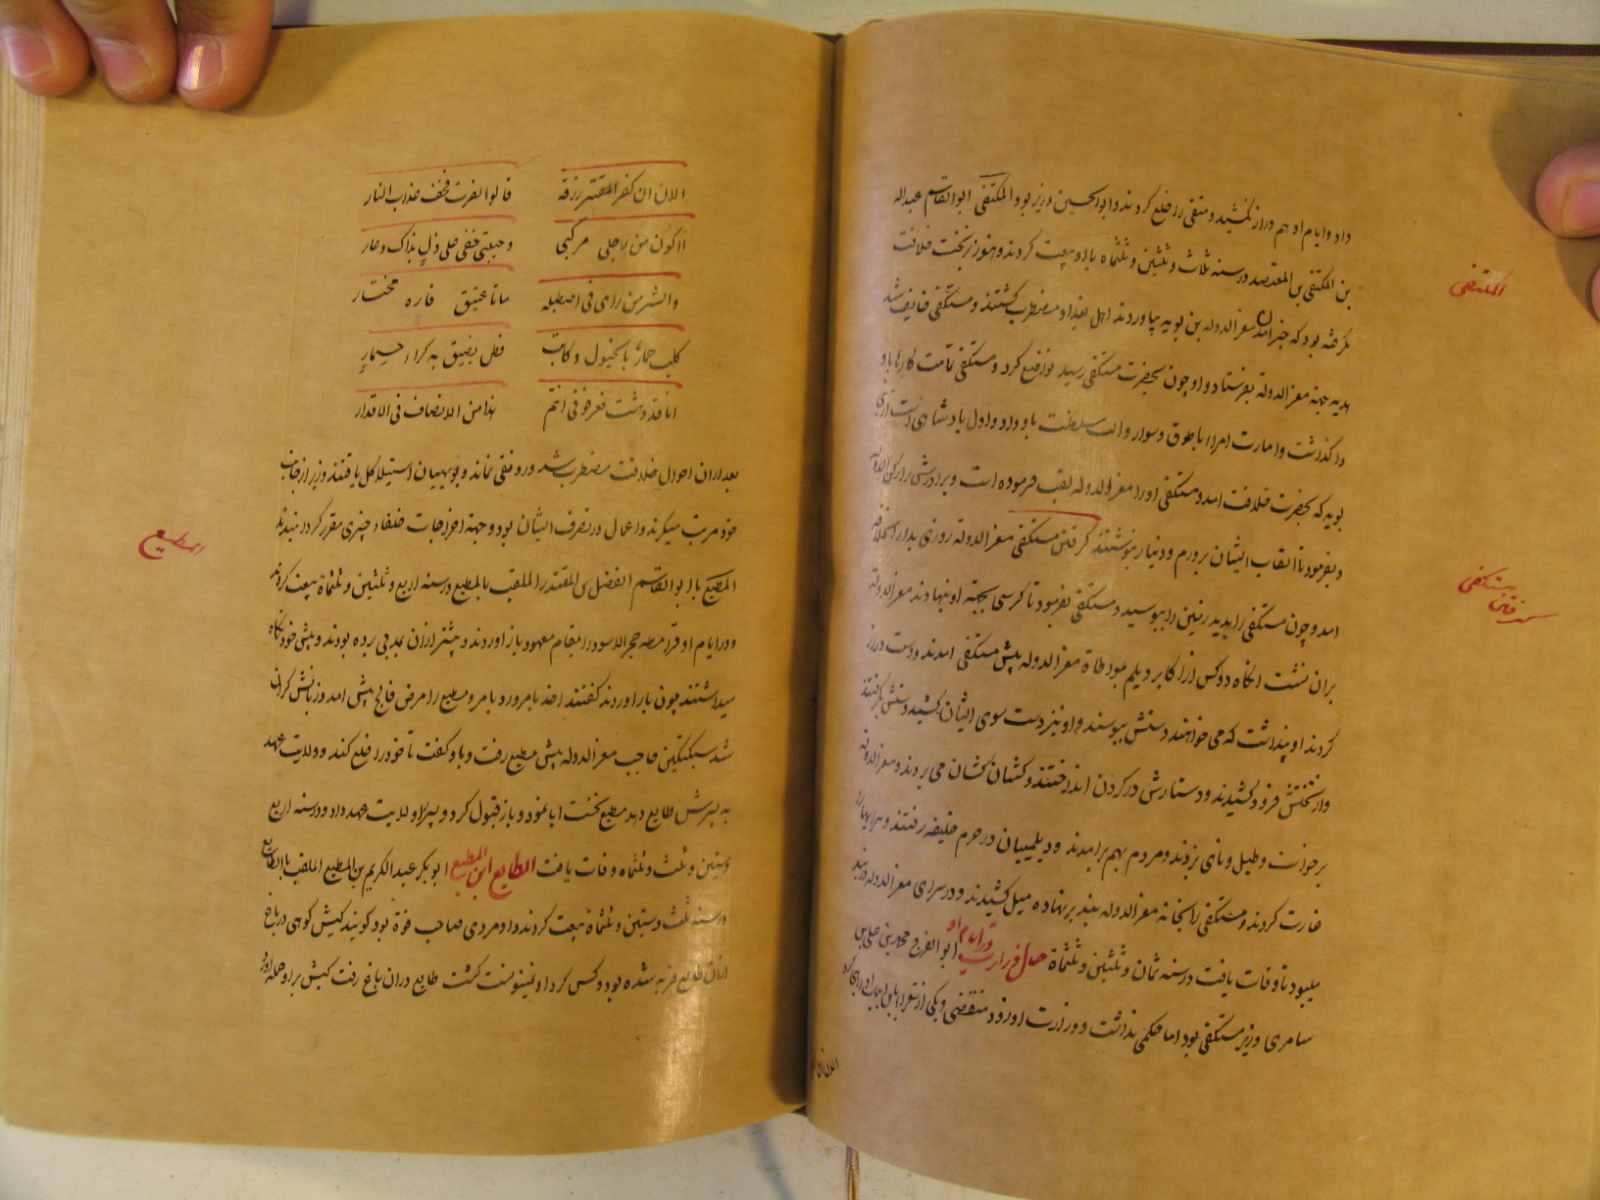 داد و ایام او هم دراز نکشید و متقی را خلع کردند و ابوالحسین وزیر بود المکتفی ابوالقاسم عبدالله
بن المکتفی بن المعتضد در سنه ثلاث و ثلثین و ثلثمأه با او بیعت کردند و هنوز زبخت خلافت
نگرفته بود که خبر آمدن معزالدوله بن بویه بیاوردند اهل بغداد مضطرب گشتند و مستکفی خایف شد
المکتفی
هدیه جهة معزالدولة بفرستاد و او چون بحضرت مستکفی رسید توزیع کرد و مستکفی تمامت کارها باو
واگذاشت و امارت امرا با طوق و سوار و الت سلطنت باو داد و اول پادشاهی است از بنی
بویه که بحضرت خلافت امد و مستکفی او را معزالدوله لقب فرموده است و برادرش را رکن الدوله
و بفرمود تا القاب ایشان بر درم و دینار بنوشتند گرفتن مستکفی معزالدوله روزی بدار الخلافه
گرفتن مستکفی
امد و چون مستکفی را بدید زمین را ببوسید و مستکفی بفرمود تا کرسی بجهة او بنهادند معزالدوله
بران نشست انگاه دو کس از اکابر دیلم بمواطاة معزالدوله پیش مستکفی امدند و دست دراز
کردند او پنداشت که می خواهند دستش ببوسند و او نیز دست سوی ایشان کشید دستش بگرفتند
و از تختش فرود کشیدند و دستارش در گردن انداختند و کشان کشان می بردند و معزالدوله
برخواست و طبل و نای بزدند و مردم بهم برامدند و دیلمیان در حرم خلیفه رفتند و سرایها را
غارت کردند و مستکفی را بخانه معزالدوله ببند بر نهاده میل کشیدند و در سرای معزالدوله دربند
میبود تا وفات یافت در سنه ثمان و ثلثین و ثلثمأة حال وزارت در ایام او ابوالفرج محمد بن علی بن
سامری وزیر مستکفی بود اما حکمی نداشت و وزارت او زود منقضی و یکی از شعرا
الان ان
الان ان کفر المقتر رزقه قالوا کفرت فخف عذاب النار
أاکون من رجلی مرکبی و حبیبتی خفی علی ذل بذاک و عار
والشر من رای فی اصطبله ماتا عتیق فاره مختار
کلب حماره بالخیول و کاتب فعل یضیق به کراء حمار
انا قد دهشت فعرفونی انتم هذا من الانصاف فی الاقدار
بعد ازان احوال خلافت مضطرب شد و رونقی نماند و بویهیان استیلا کل یافتند وزیر از جانب
خود مرتب میکرند و اعمال در تصرف ایشان بود و جهة اخراجات خلفاء چیزی مقرر گردانیدند
المطیع
المطیع با ابوالقاسم الفضل بن المقتدر الملقب بالمطیع در سنه اربع و ثلثین و ثلثمأة بیعت کردند
و در ایام او قرامطه حجر الاسود را بمقام معهود باز اوردند و پیشتر ازان بمدتی برده بودند و پیش خود نگاه
میداشتند چون باز اوردند گفتند اخذ بامر ورد بامر و مطیع را مرض فالج پیش امد و زبانش گران
شد سبکتکین حاجب معزالدوله پیش مطیع رفت و باو گفت تا خود را خلع کند و ولایت عهد
به پسرش طایع دهد مطیع نخست ابا نمود و باز قبول کرد و پسر را ولایت عهد داد و در سنه اربع
وستین و ثلث و ثلثمأه وفات یافت الطایع ابن المطیع ابوبکر عبدالکریم بن المطیع الملقب بالطایع
در سنه ثلث و ستین و ثلثمأة بیعت کردند و او مردی صاحب قوة بود گویند کبش کوهی در باغ
ازان طایع فربه شده بود و کس گرد او نمیتوانست گشت طایع دران باغ رفت کبش بر او حمله اورد